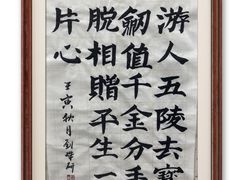 游人五陵去寳
劒值千金分手
脱相贈平生一
片心
壬寅秋月劉